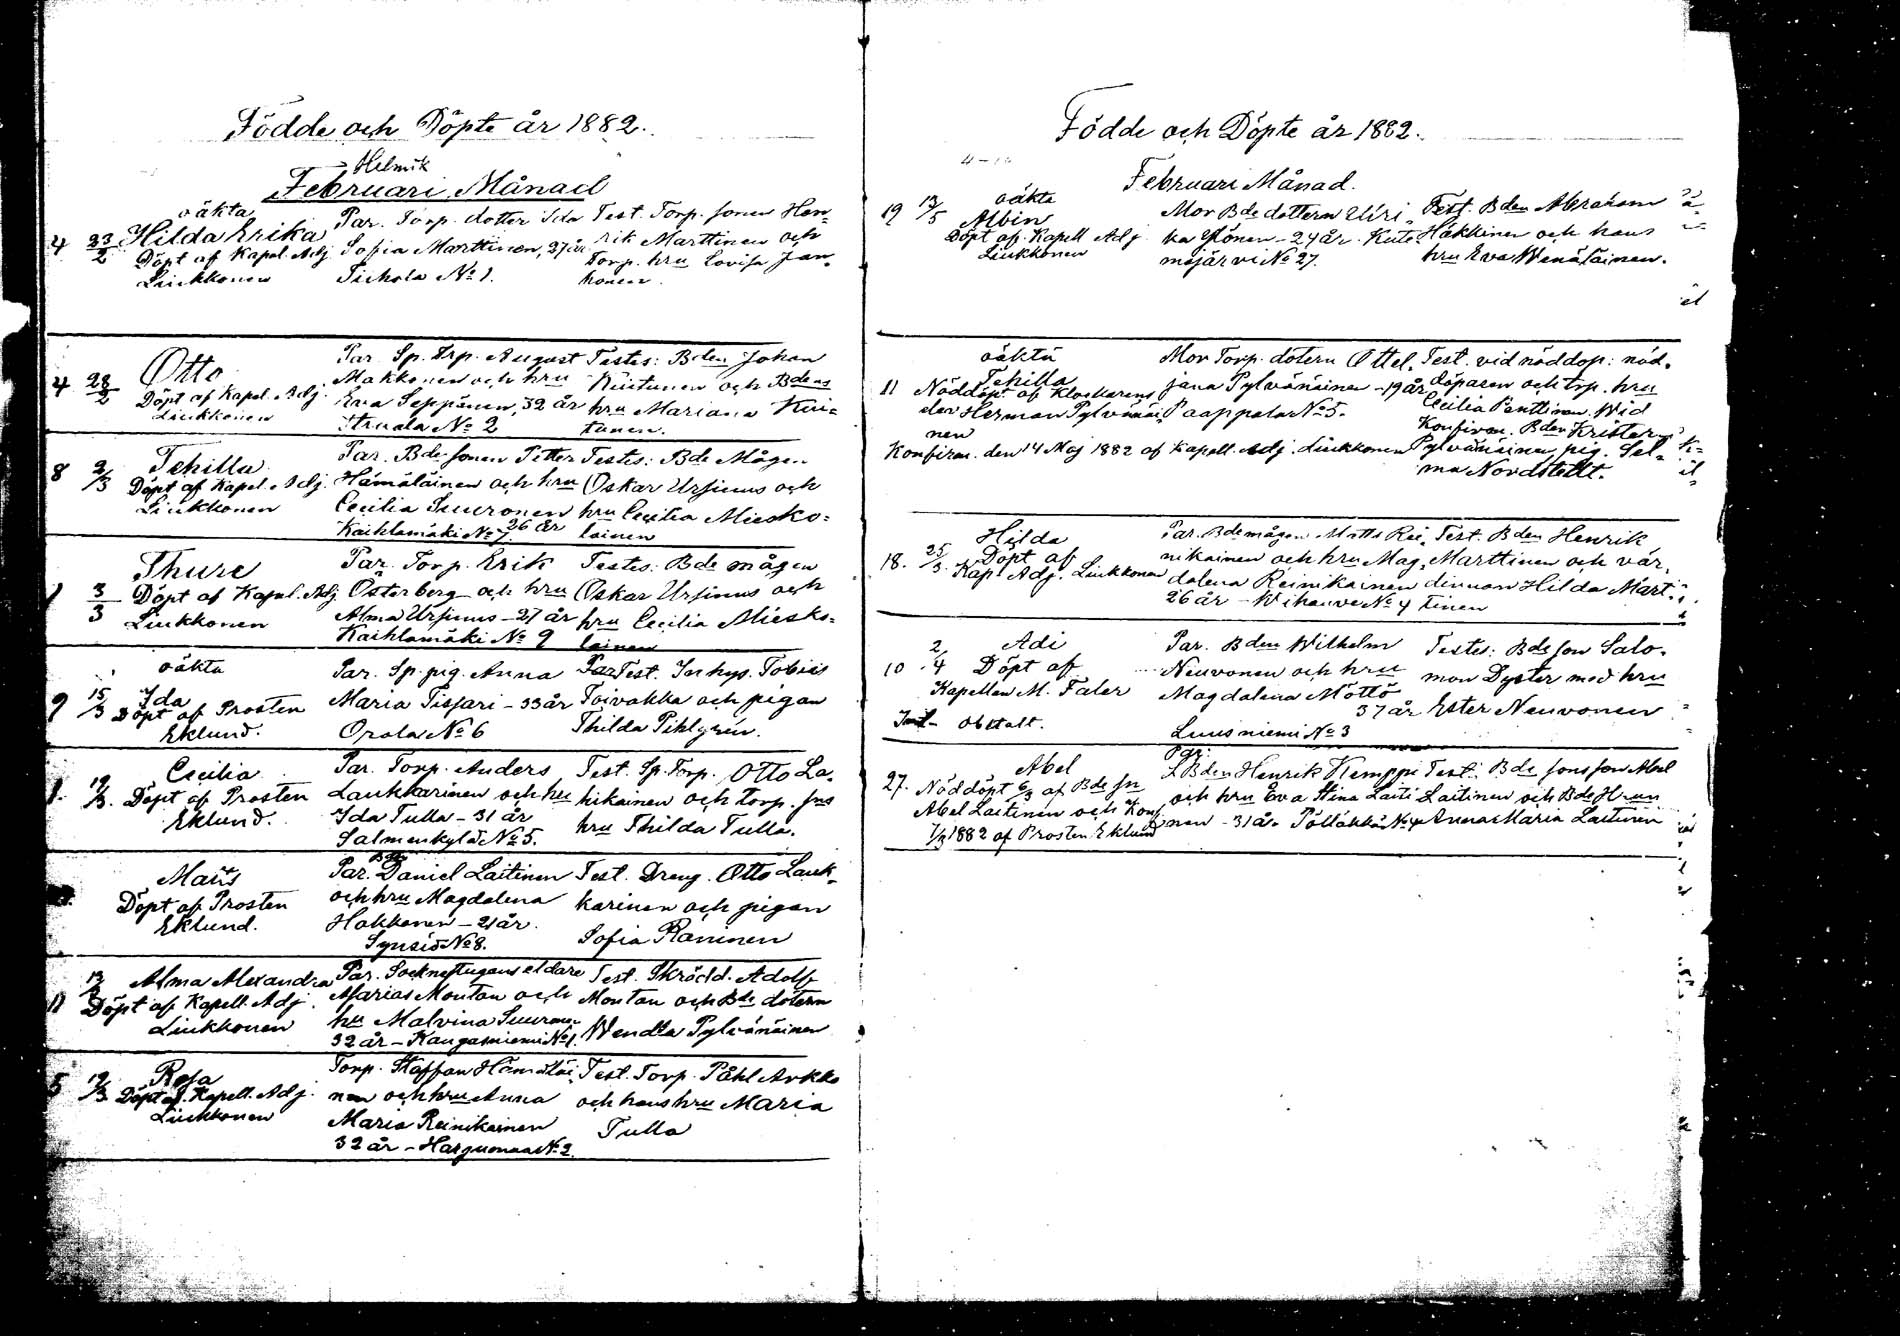 Födde och Döpte år 1882.
Helmik
Februari Månad
oäkta
4 23/2 Hilda Erika Par. Torp. dotter Ida Test. Torp. sonen Hen-
Döpt af Kapel. Adj. Sofia Marttinen, 27 år rik Marttinen och
Liukkonen Tiihola No 1. Torp. hru Lovisa Jan-
konen.
4 28/2 Otto Par. Sp. trp. August Testes: Bden Johan
Döpt af Kapel. Adj. Makkonen och hru Kiistunen och Bdens
Liukkonen Eva Seppänen, 32 år hru Mariana Kii-
No 2 tunen.
8 2/3 Tekilla Par. Bde sonen Petter Testes: Bde Mågen
Döpt af Kapel. Adj. Hämäläinen och hru Oskar Ursinus och
Liukkonen Cecilia Suuronen hru Cecilia Miesko-
26 år
Kaihlamäki No 7 lainen
3/3 Thure Par. Torp. Erik Testes: Bde mågen
Döpt af Kapel. Adj Österberg och hru Oskar Ursinus och
Liukkonen Alma Ursinus - 27 år hru Cecilia Miesko-
Kaihlamäki No 9 lainen
oäkta
9 15/3 Ida Par. Sp. pig. Anna Test. Inhys. Tobias
Döpt af Prosten Maria Tissari - 33 år Toivakka och pigan
Eklund. Orola No 6 Thilda Pihlgrén.
19/3 Cecilia Par. Torp. Anders Test. Sp. Torp. Otto La-
Döpt af Prosten Laukkarinen och hru hikainen och Torp. sns
Eklund. Ida Tulla - 31 år hru Thilda Tulla.
Salmenkylä No 5.
Matts Par. Bde Daniel Laitinen Test. Dreng. Otto Lauk-
Döpt af Prosten och hru Magdalena karinen och pigan
Eklund. Hokkanen - 21 år. Sofia Raninen
Synsiö No 8.
11 Alma Alexandra Par. Socknestugans eldare Test. Skrädd. Adolf
Döpt af Kapell. Adj. Marias Montan och Montan och Bde dotern
Liukkonen hru Malvina Suuronen Wendla Pylvänäinen
32 år - Kangasniemi No 1.
5 19/3 Rosa Torp. Staffan Hämäläi- Test. Torp. Påhl Arkko
Döpt af Kapell. Adj. nen och hru Anna och hans hru Maria
Liukkonen Maria Reinikainen Tulla
32 år - Hargunmaa No 2.
Födde och Döpte år 1882.
Februari Månad.
oäkta
19 13/5 Albin Mor Bde dottern Ulri- Test. Bden Abraham
Döpt af Kapell Adj. ka Ylönen - 24 år. Kute- Häkkinen och hans
Liukkonen majärvi No 27. hru Eva Wenäläinen.
oäkta
11 Tekilla Mor Torp. dotern Ottel- Test. vid nöddop: nöd-
Nöddöpt af Klockarens jana Pylvänäinen - 19 år döparen och trp. hru
Herman Pylvänäi- Paappala No 5. Cecilia Penttinen. Wid
nen Konfirm. Bden Krister
Konfirm. den 14 Maj 1882 af Kapell. Adj. Liukkonen Pylvänäinen, pig. Sel-
ma Nordstedt.
18. 25/3. Hilda Par. Bde mågen Matts Rei- Test. Bden Henrik
Döpt af nikainen och hru Mag- Marttinen och vär-
Kap. Adj. Liukkonen dalena Reinikainen dinnan Hilda Mart-
26 år - Wihanve No 4 tinen
10 2/4 Adi Par. Bden Wilhelm Testes: Bde son Salo-
Döpt af Neuvonen och hru mon Dyster med hru
Kapellan M. Faler Magdalena Möttö Ester Neuvonen
37 år
obetalt. Luusniemi No 3
27. Abel Par: Bden Henrik Kemppi Test: Bde sons son Abel
Nöddöpt 6/3 af Bde sn och hru Eva Stina Laiti- Laitinen och Bde Hrun
Abel Laitinen och Konf. nen - 31 år. Pölläkkä No 4 Anna Maria Laitinen
7/3 1882 af Prosten Eklund